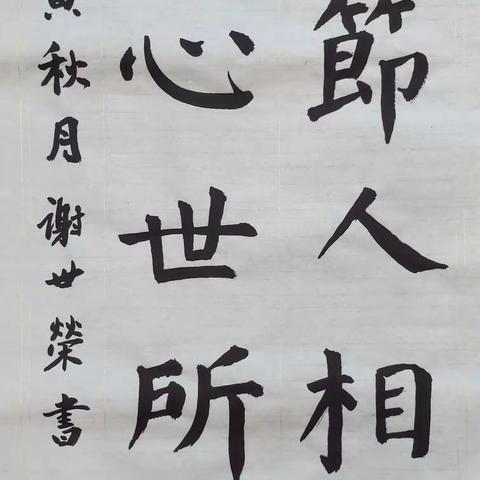 節人相
心世所
秋月谢世荣書